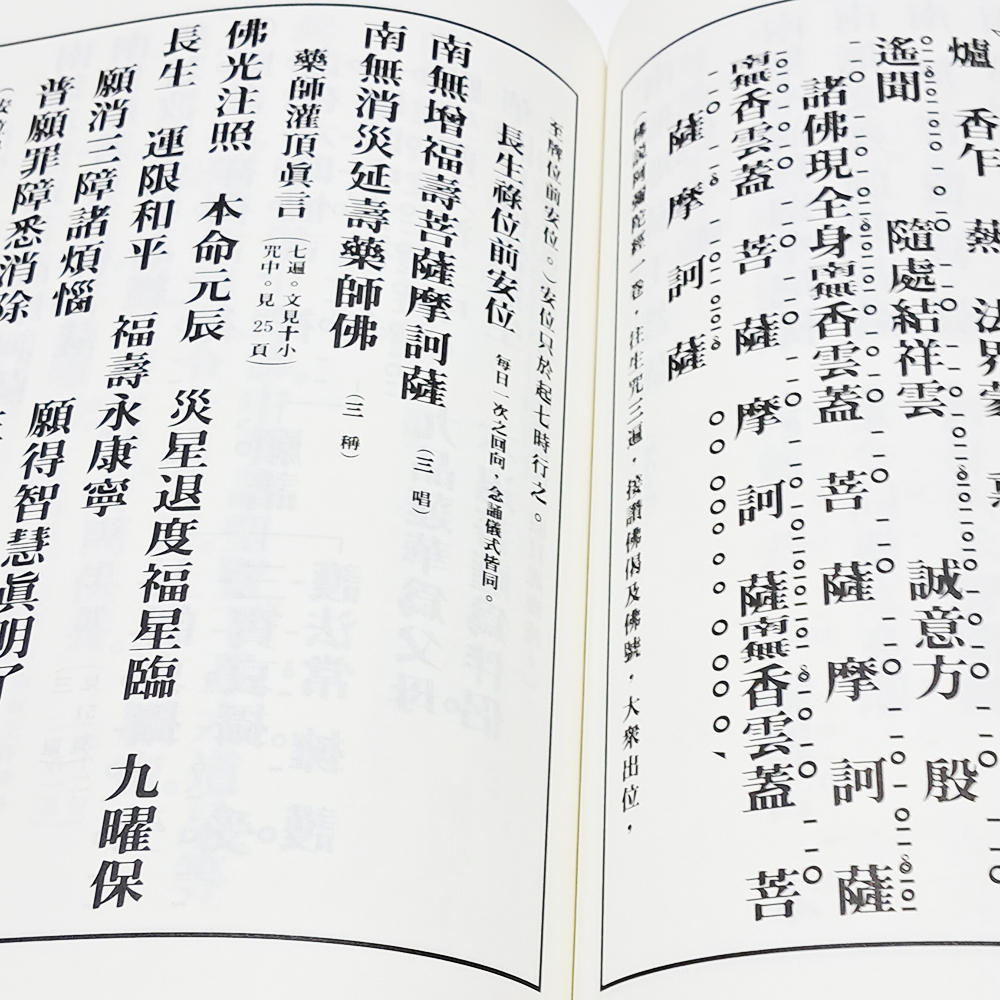 爐 香乍 熱 法界蒙
遙聞 隨處結祥雲 誠意方 殷
諸佛現全身南無香雲蓋 菩 薩 摩 訶 薩
南無香雲蓋 菩 薩 摩 訶 薩南無香雲蓋 菩
薩 摩 訶 薩
(佛說阿彌陀經一卷，往生咒三遍，接讚佛偈及佛號，大眾出位，
至牌位前安位。)安位只於起七時行之。
長生祿位前安位 每日一次之回向，念誦儀式皆同。
南無增福壽菩薩摩訶薩(三唱)
南無消災延壽藥師佛(三稱)
藥師灌頂眞言(七遍。文見十小咒中。見25頁)
佛光注照 本命元辰 災星退度福星臨 九曜保
長生 運限和平 福壽永康寧
願消三障諸煩惱 願得智慧眞明了
普願罪障悉消除